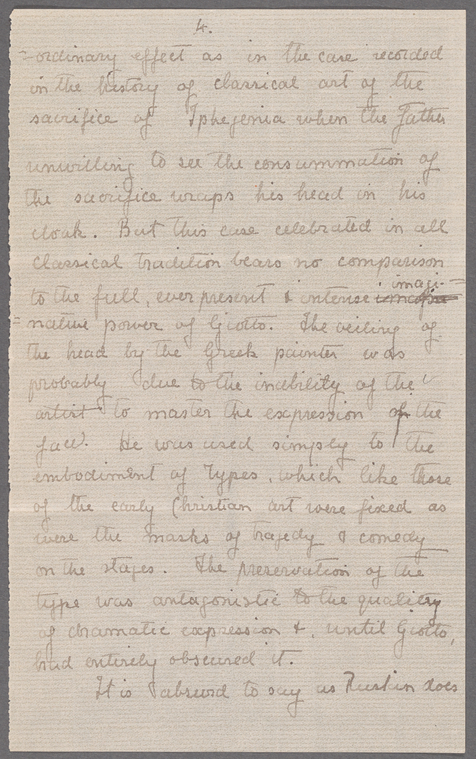 4.
=ordinary effect as in the case recorded
in the history of classical art of the
sacrifice of Iphegenia when the father
unwilling to see the consummation of
the sacrifice wraps his head in his
cloak. But this case celebrated in all
classical tradition bears no comparison
imagi-
to the full, ever present & intense
=native power of Giotto. The veiling of
the head by the Greek painter was
probably due to the inability of the
artist to master the expression of the
face. He was used simply to the
embodiment of Types, which like those
of the early Christian art were fixed as
were the masks of tragedy & comedy
on the stages. The preservation of the
type was antagonistic to the quality
of dramatic expression &, until Giotto,
had entirely obscured it.
It is absurd to say as Ruskin does